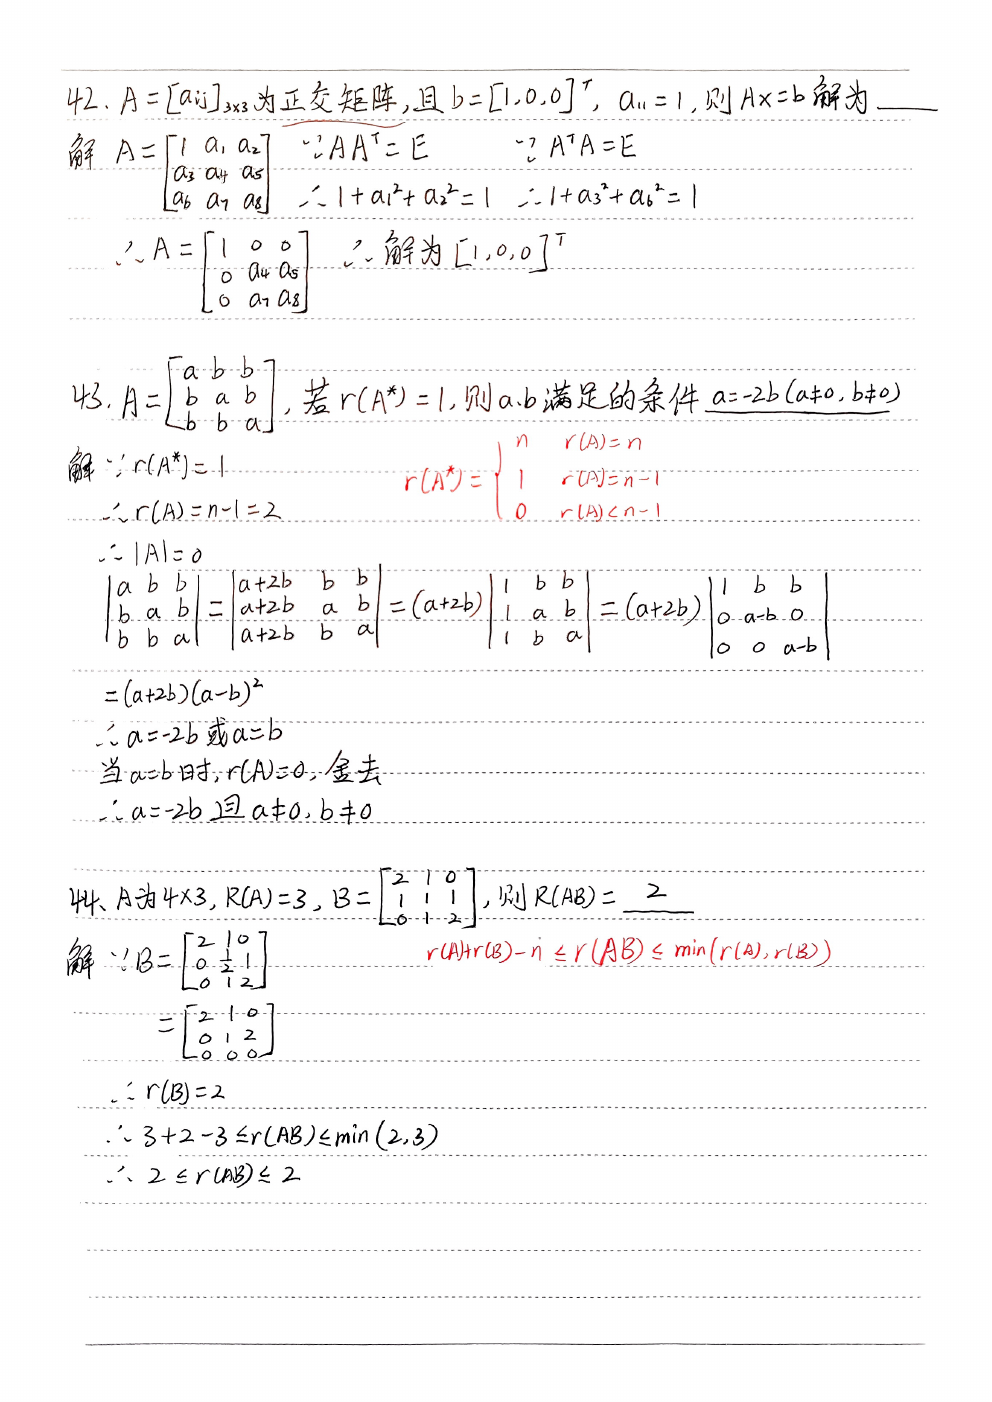 42. A=[aij]3×3为正交矩阵,且b=[1,0,0]ᵀ, a₁₁=1,则Ax=b解为____
解 A=[1 a₁ a₂ ∵AAᵀ=E ∵AᵀA=E
a₃ a₄ a₅
a₆ a₇ a₈] ∴1+a₁²+a₂²=1 ∴1+a₃²+a₆²=1
∴A=[1 0 0 ∴解为[1,0,0]ᵀ
0 a₄ a₅
0 a₇ a₈]
43. A=[a b b
b a b ,若r(A*)=1,则a.b满足的条件 a=-2b(a≠0,b≠0)
b b a]
解 ∵r(A*)=1
r(A*)={n r(A)=n
1 r(A)=n-1
0 r(A)<n-1
∴r(A)=n-1=2
∴|A|=0
|a b b| |a+2b b b| |1 b b| |1 b b|
|b a b|=|a+2b a b|=(a+2b)|1 a b|=(a+2b)|0 a-b 0|
|b b a| |a+2b b a| |1 b a| |0 0 a-b|
=(a+2b)(a-b)²
∴a=-2b或a=b
当a=b时,r(A)=0,舍去
∴a=-2b且a≠0,b≠0
44、A为4×3,R(A)=3,B=[2 1 0
1 1 1 ,则R(AB)= 2
0 1 2]
解 ∵B=[2 1 0
0 ½ 1
0 1 2]
r(A)+r(B)-n≤r(AB)≤min(r(A),r(B))
=[2 1 0
0 1 2
0 0 0]
∴r(B)=2
∴3+2-3≤r(AB)≤min(2,3)
∴2≤r(AB)≤2